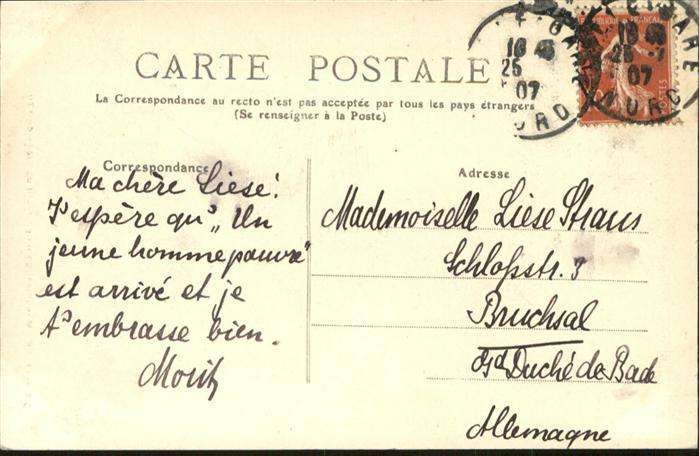 CARTE POSTALE
La Correspondance au recto n'est pas acceptée par tous les pays étrangers
(Se renseigner à la Poste)
Correspondance
Ma chère Liese!
J'espère qu' „Un
jeune homme pauvre"
est arrivé et je
t'embrasse bien.
Moritz
Adresse
Mademoiselle Liese Straus
Schloßstr. 3
Bruchsal
Gd Duché de Bade
Allemagne
25
07
25
07